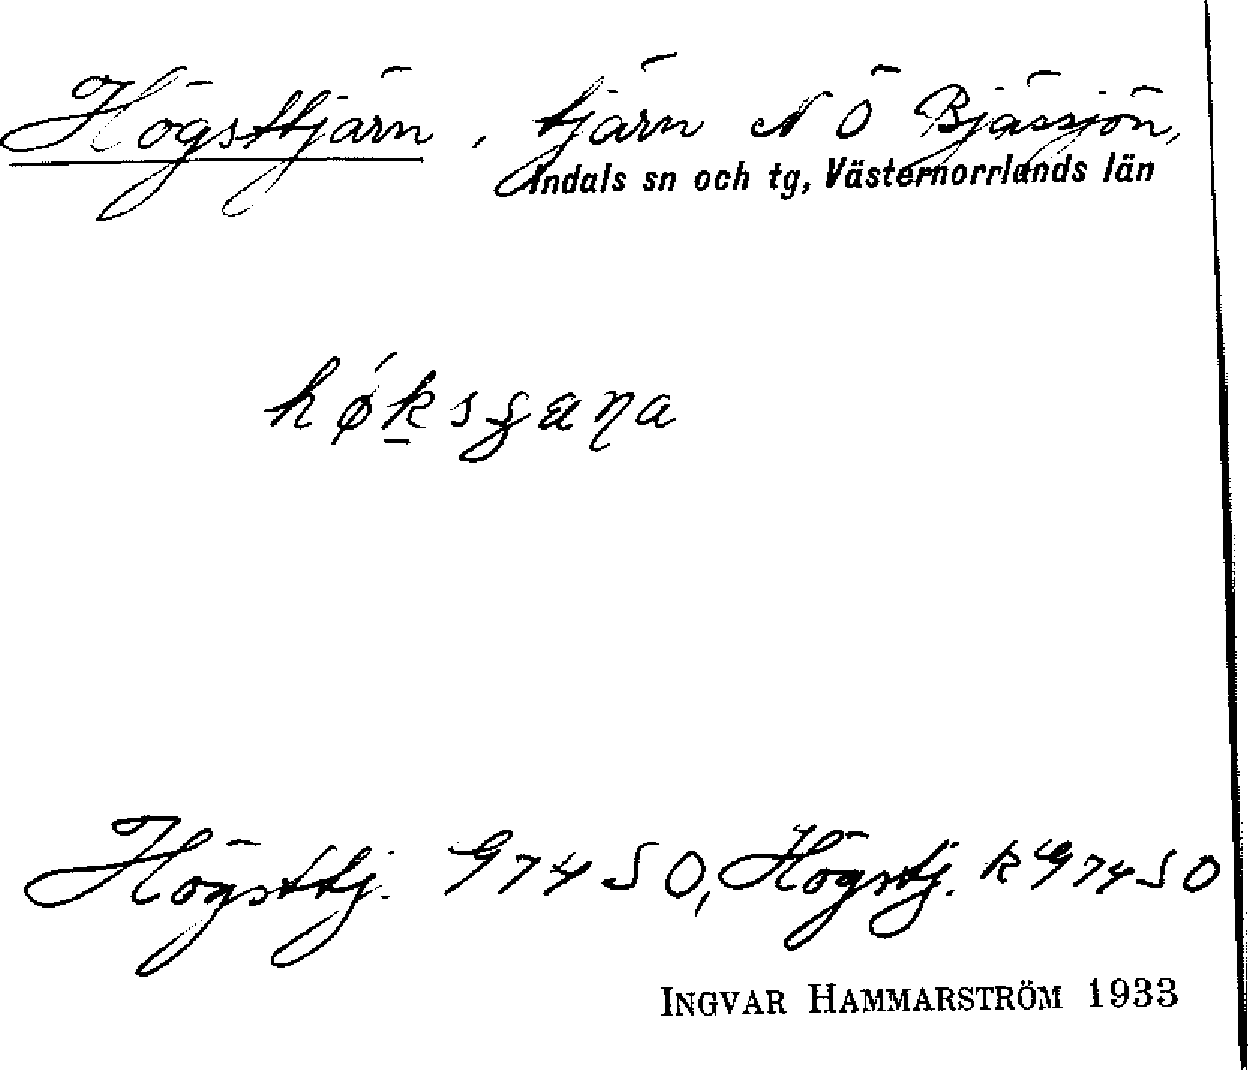 Högsttjärn, tjärn NÖ Bjässjön,
Indals sn och tg, Västernorrlands län
Högsttj. G 74 SO, Högstj. RG 74 SO
INGVAR HAMMARSTRÖM 1933